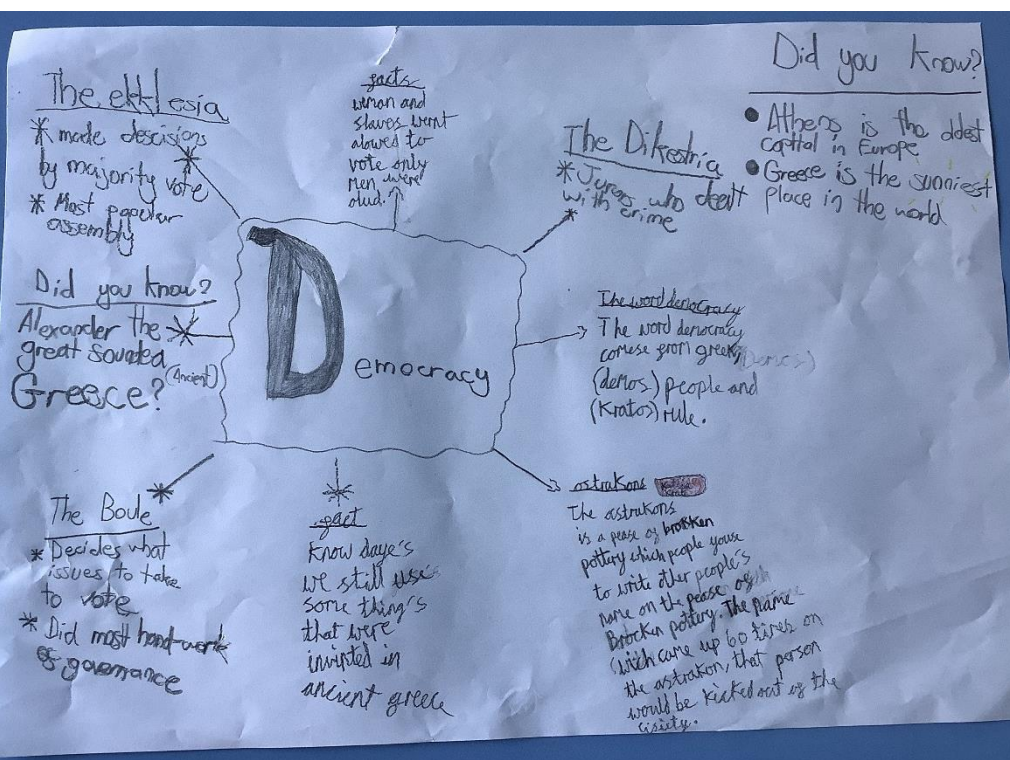 The ekklesia
* made descisions
by majority vote
* Most popular
assembly
facts
weman and
slaves wernt
alowed to
vote only
men were
alud.
The Dikestria
* Jurors who dealt
with crime
Did you know?
• Athens is the oldest
capital in Europe
• Greece is the sunniest
place in the world
Did you know?
Alexander the
great sounded
(Ancient)
Greece?
Democracy
The word democracy
The word democracy
comese from greek, (Demos)
(demos) people and
(Kratos) rule.
The Boule
* Decides what
issues to take
to vote
* Did most hard work
of governance
fact
Know daye's
we still use
some thing's
that were
invinted in
ancient greece
ostrakons
The astrakons
is a pease of brosken
pottery which people youse
to write other people's
name on the pease of
Brocken pottery. The name
wich came up 60 times on
the astrakon, that person
would be kicked out of the
cisiety.